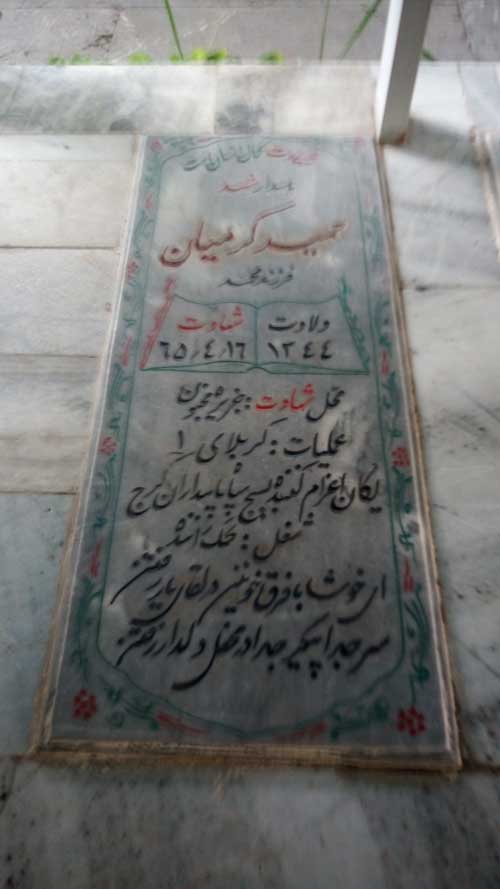 شهادت کمال انسان است
پاسدار شهید
حمید کرمیان
فرزند محمد
ولادت شهادت
۱۳۴۴ ۶۵/۴/۱۶
محل شهادت: جزیره مجنون
عملیات: کربلای ۱
یگان اعزام کننده بسیج سپاه پاسداران کرج
شغل:
ای خوشا با فرق خونین در لقای یار رفتن
سر جدا پیکر جدا در محفل دلدار رفتن